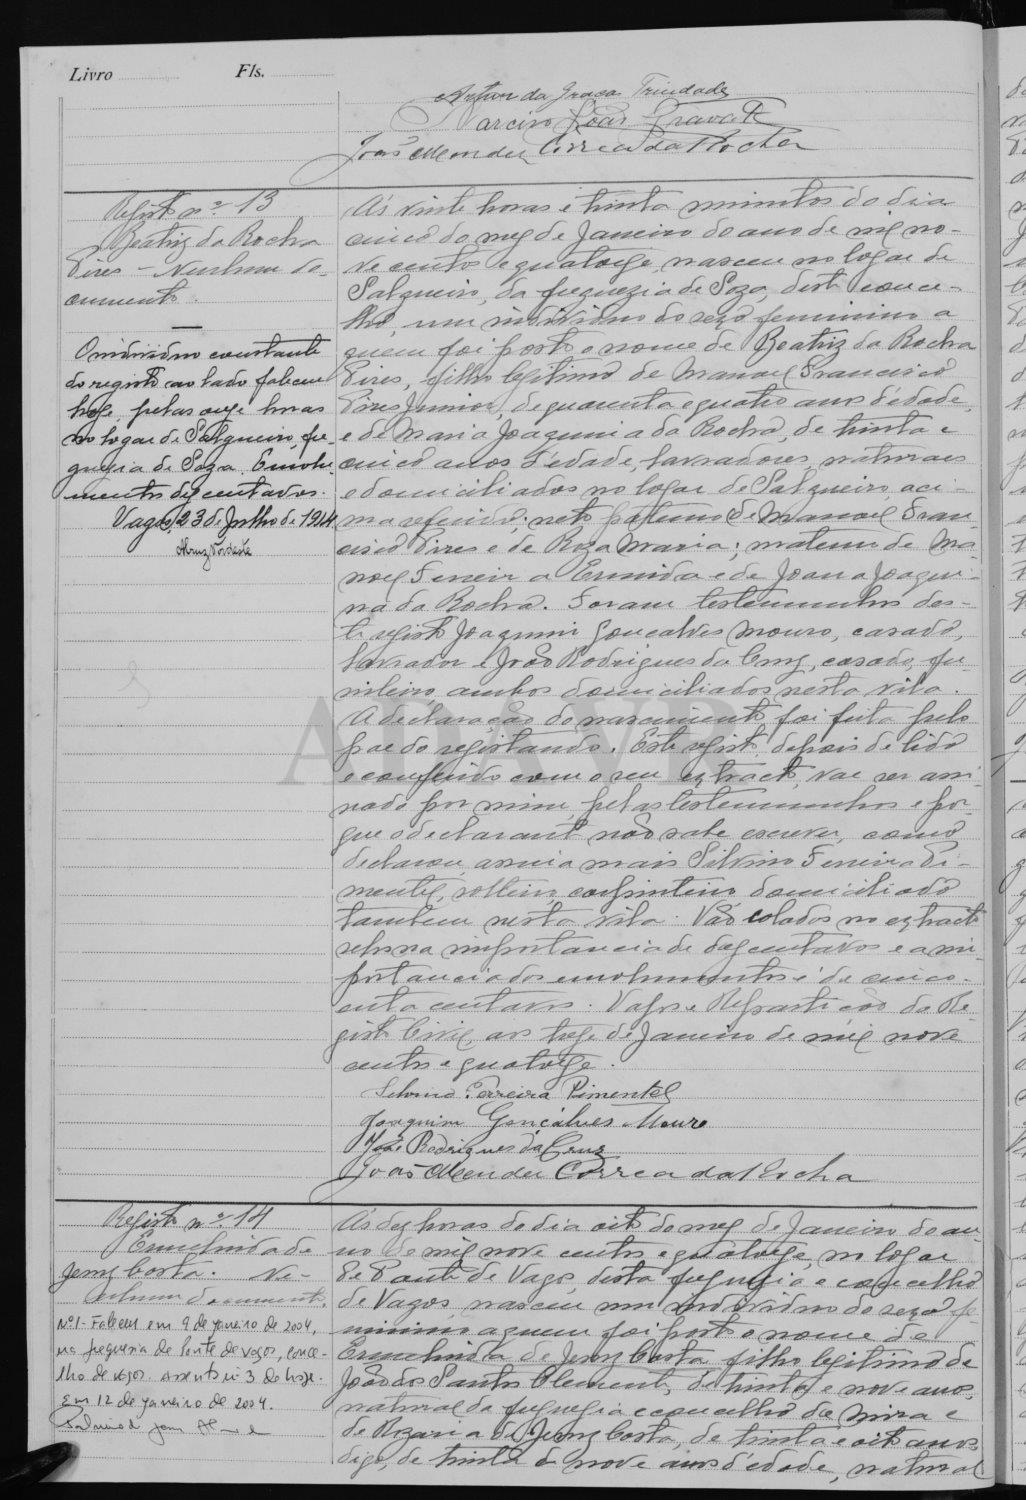 Livro Fls.
Artur da Graça Trindade
Narciso
João Mendes Correa da Rocha
Registo nº 13
Beatriz da Rocha
Pires - Nenhum do-
cumento.
O individuo constante
do registo ao lado faleceu
hoje pelas onze horas
no logar de Salgueiro, fre-
guesia de Soza. Emolu-
mentos dez centavos.
Vagos, 23 de Julho de 1914
Ás vinte horas e trinta minutos do dia
cinco do mez de Janeiro do ano de mil no-
ve centos e quatorze, nasceu no logar de
Salgueiro, da freguezia de Soza, deste conce-
lho, um individuo do sexo feminino a
quem foi posto o nome de Beatriz da Rocha
Pires, filho legitimo de Manoel Francisco
Pires Junior, de quarenta e quatro anos d'edade,
e de Maria Joaquina da Rocha, de trinta e
cinco anos d'edade, lavradores, naturaes
e domiciliados no logar de Salgueiro aci-
ma referido; neto paterno de Manoel Fran-
cisco Pires e de Roza Maria; materno de Ma-
noel Ferreira Ermida e de Joana Joaqui-
na da Rocha. Foram testemunhas des-
te registo Joaquim Gonçalves Mouro, casado,
lavrador e João Rodrigues da Cruz, casado, fu-
nileiro, ambos domiciliados nesta vila.
A declaração do nascimento foi feita pelo
pae do registando. Este registo, depois de lido
e conferido com o seu extracto, vae ser assi-
nado por mim, pelas testemunhas e por-
que o declarante não sabe escrever, como
declarou, assina mais Silvino Ferreira Pi-
mentel, solteiro, carpinteiro, domiciliado
tambem nesta vila. Vão colados no extracto
selos na importancia de dez centavos e a im-
portancia dos emolumentos é de cinco-
enta centavos. Vagos e Repartição do Re-
gisto Civil, aos treze de Janeiro de mil nove
centos e quatorze.
Silvino Ferreira Pimentel
Joaquim Gonçalves Mouro
João Rodrigues da Cruz
João Mendes Correa da Rocha
ADAVR
Registo nº 14
Ermelinda de
Jesus Costa. Ne-
nhum documento.
Nº1 - Faleceu em 9 de janeiro de 2004,
na freguesia de Ponte de Vagos, conce-
lho de Vagos. Assento nº 3 de hoje.
Em 12 de janeiro de 2004.
Ás dez horas do dia oito do mez de Janeiro do an-
no de mil nove centos e quatorze, no logar
de Ponte de Vagos, desta freguesia e concelho
de Vagos, nasceu um individuo do sexo fe-
minino a quem foi posto o nome de
Ermelinda de Jesus Costa filho legitimo de
João dos Santos Clemente, de trinta e nove anos,
natural da freguesia e concelho de Mira e
de Rozaria de Jesus Costa, de trinta e oito anos
digo, de trinta e nove anos d'edade, natural